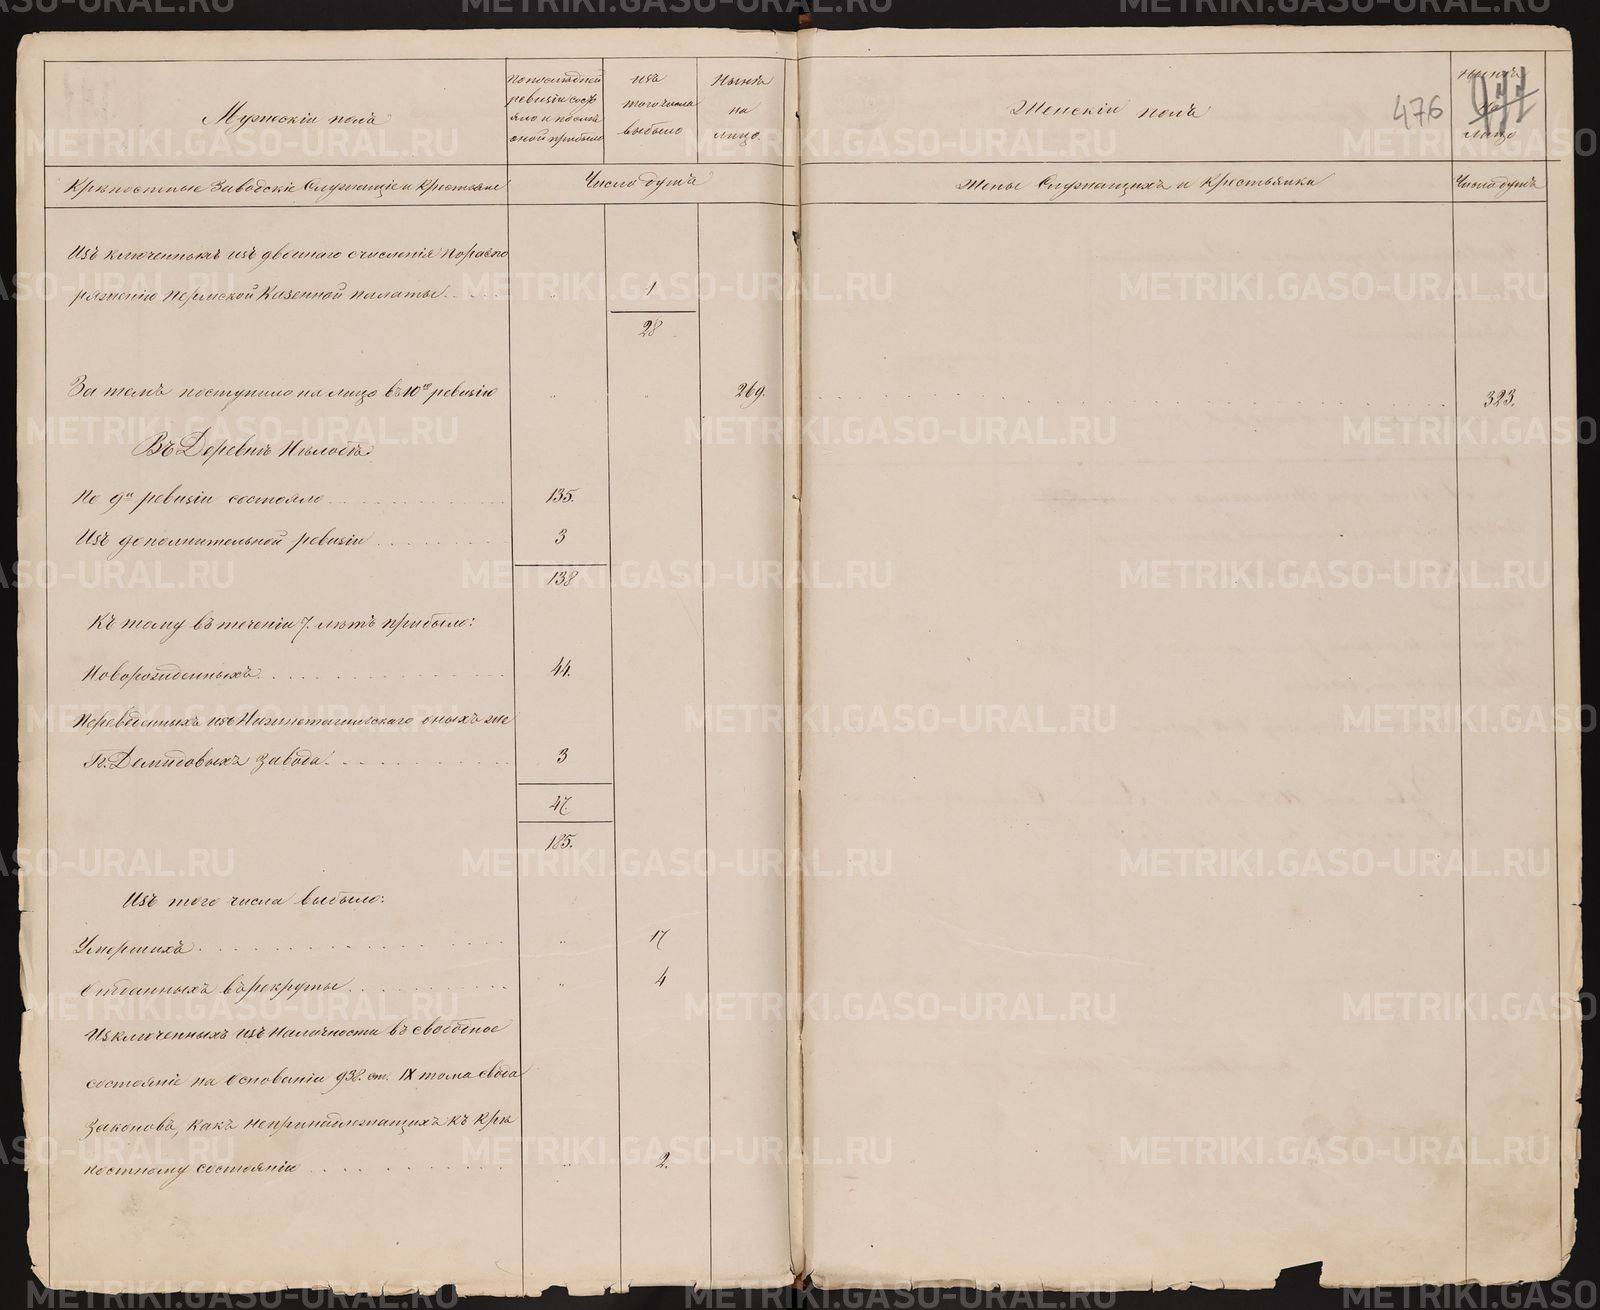 Мужескій полъ
По последней
ревизіи состо
яло и после
оной прибыло
Изъ
того числа
выбыло
Ныне
на
лицо.
Женскій полъ
476
Ныне
на
лицо
Крепостные Заводскіе Служащіе и Крестьяне
Число душъ
Жены Служащихъ и Крестьянки
Число душъ
Изъ ключенныхъ изъ двойнаго счисленія по распо
ряженію Пермской Казенной палаты . . . . „ 1
28
За темъ поступило на лицо въ 10ю ревизію „ „ 269. 323.
Въ Деревне
По 9й ревизіи состояло 135.
Изъ дополнительной ревизіи 3
138
Къ тому въ теченіи 7. летъ прибыло:
Новорожденныхъ 44.
Переведенныхъ изъ Нижнетагильскаго оныхъ же
Гг. Демидовыхъ завода 3
47.
185.
Изъ того числа выбыло:
Умершихъ „ 17
Отданныхъ въ рекруты „ 4
Изключенныхъ изъ Наличности въ свободное
состояніе на Основаніи 938. ст. IX тома свода
законовъ, какъ непринадлежащихъ къ кре
постному состоянію „ 2.
METRIKI.GASO-URAL.RU